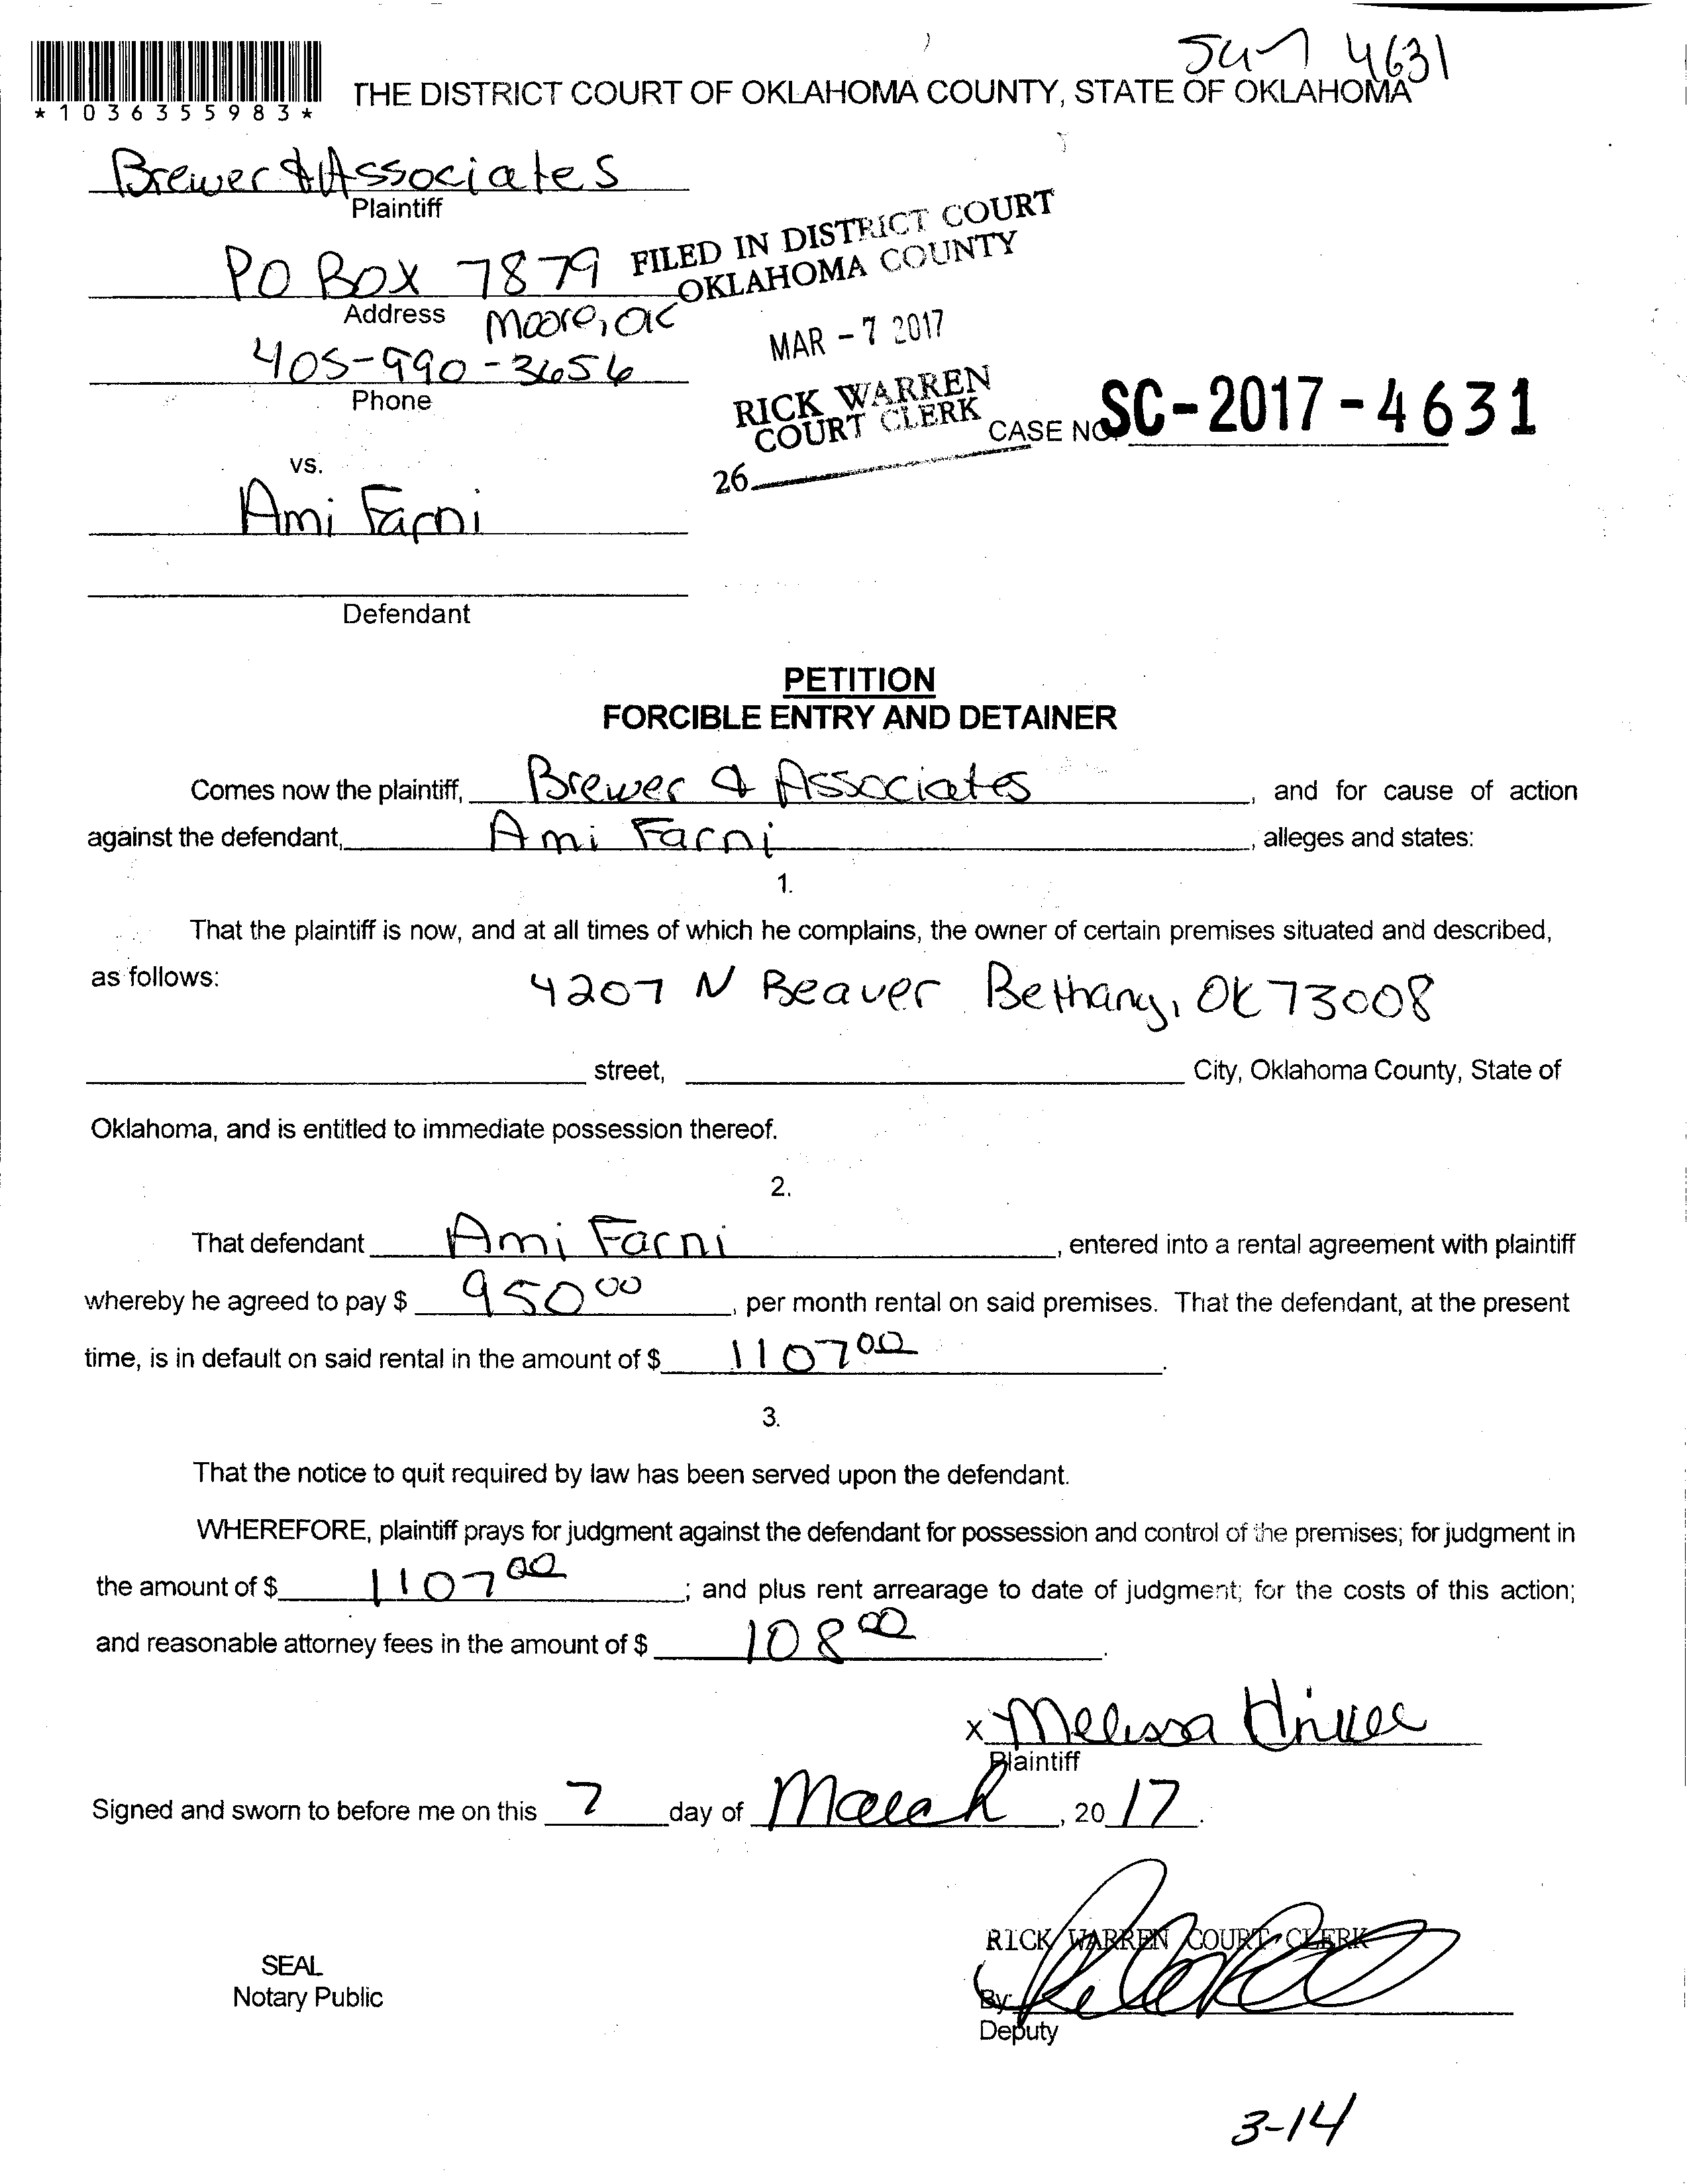 4631
THE DISTRICT COURT OF OKLAHOMA COUNTY, STATE OF OKLAHOMA
*1036355983*
Brewer & Associates
Plaintiff
PO BOX 7879
Address Moore, OK
405-990-3656
Phone
FILED IN DISTRICT COURT
OKLAHOMA COUNTY
MAR - 7 2017
RICK WARREN
COURT CLERK
26
CASE NO. SC-2017-4631
vs.
Ami Farni
Defendant
PETITION
FORCIBLE ENTRY AND DETAINER
Comes now the plaintiff, Brewer & Associates, and for cause of action
against the defendant, Ami Farni, alleges and states:
1.
That the plaintiff is now, and at all times of which he complains, the owner of certain premises situated and described,
as follows: 4207 N Beaver Bethany, OK 73008
street, City, Oklahoma County, State of
Oklahoma, and is entitled to immediate possession thereof.
2.
That defendant Ami Farni, entered into a rental agreement with plaintiff
whereby he agreed to pay $ 950 00, per month rental on said premises. That the defendant, at the present
time, is in default on said rental in the amount of $ 1107 00.
3.
That the notice to quit required by law has been served upon the defendant.
WHEREFORE, plaintiff prays for judgment against the defendant for possession and control of the premises; for judgment in
the amount of $ 1107 00; and plus rent arrearage to date of judgment; for the costs of this action;
and reasonable attorney fees in the amount of $ 108 00.
x Melissa
Plaintiff
Signed and sworn to before me on this 7 day of March, 20 17.
RICK WARREN COURT CLERK
SEAL
Notary Public
By:
Deputy
3-14